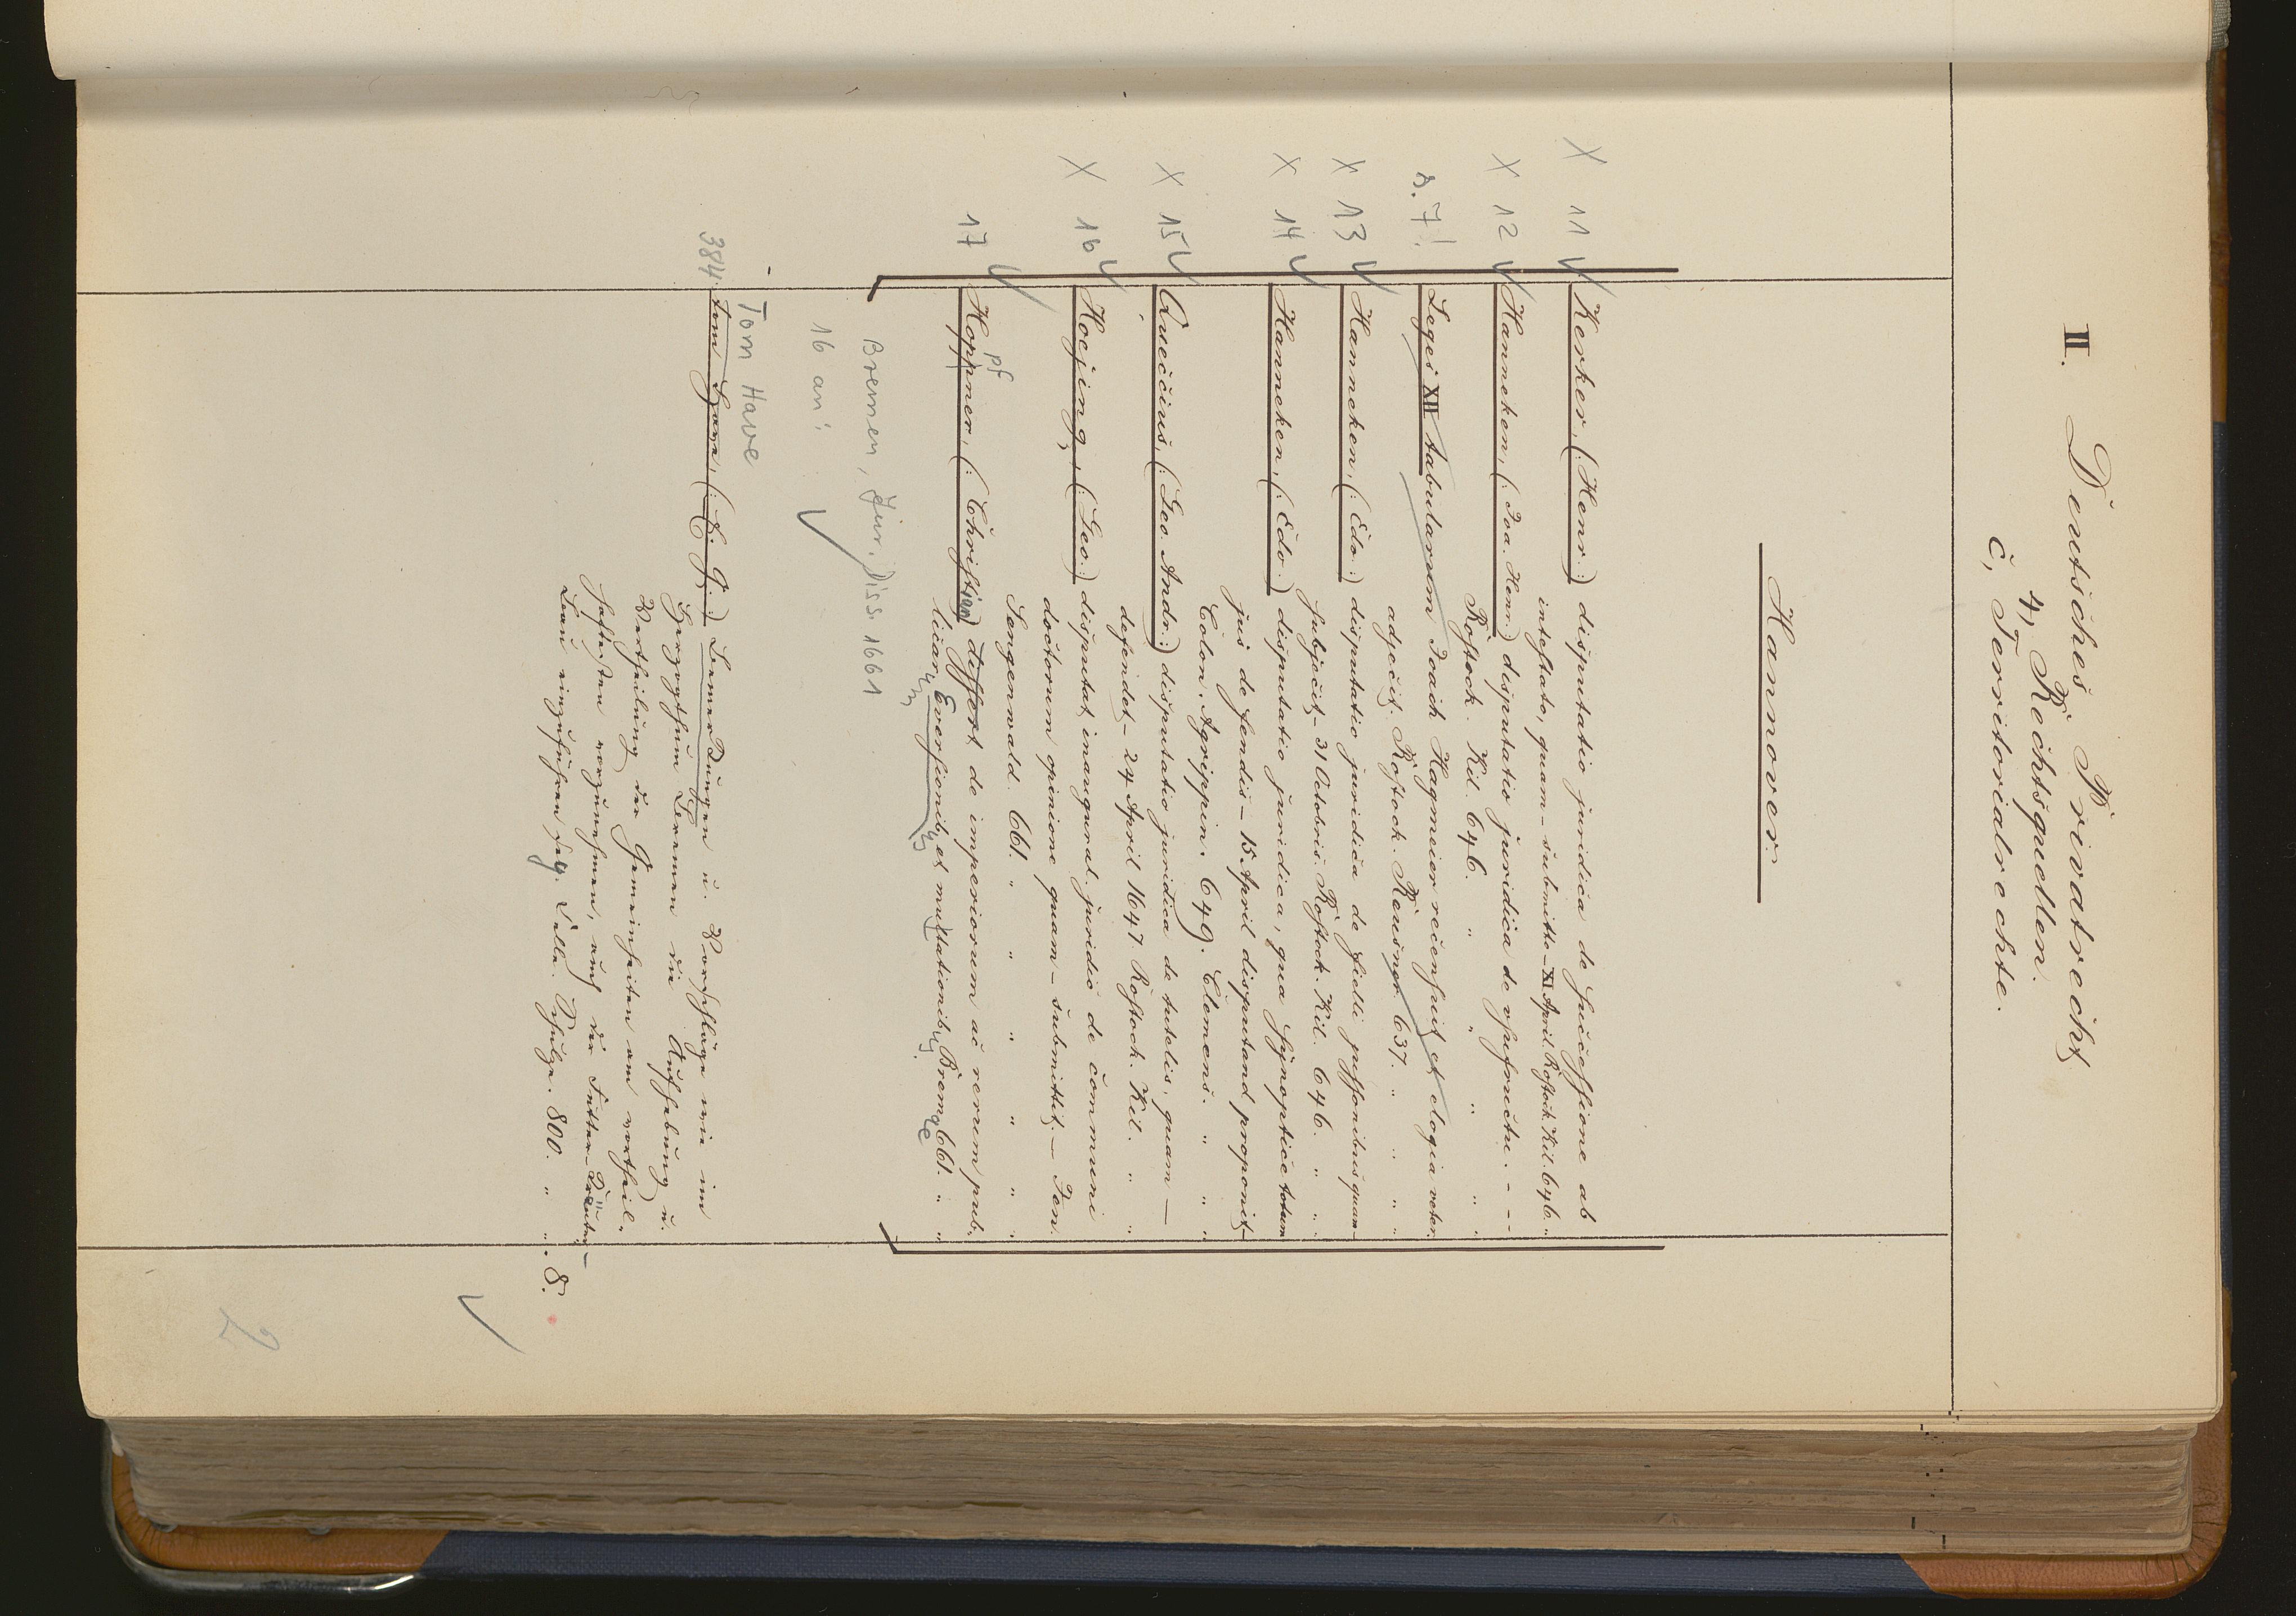 II. Deutsches Privatrecht,
4, Rechtsquellen.
c, Territorialrechte.
Hannover.
X 11 Kerker, (: Henr:) disputatio juridica de successione ab
intestato, quam – submitto – XI April. Rostock. Kil. 646. "
X 12 Hanneken, (: Joa. Henr:) disputatio juridica de usufructu. - - -
Rostock. Kil. 646. " " " "
s. 7! Leges XII tabularum Joach Hagmeier recensuit et elogia veter.
adjecit. Rostock. Reusner. 637. " " " "
X 13 Hanneken, (: Edo:) disputatio juridica de fidei jussoribus quam –
subjicit – 31 Octobris Rostock. Kil. 646. " "
X 14 Hanneken, (: Edo:) disputatio juridica, qua synoptice totum
jus de feudis – 15. April disputand proponit –
Colon. Agrippin. 649. Clemens. " " "
X 15 Quaccius, (: Geo. Andr:) disputatio juridica de tutelis, quam –
defendet – 24 April 1647 Rostock. Kil. " "
X 16 Hoejing, (: Geo:) disputat. inaugural. juridic de communi
doctorum opinione quam – submittit – Jen.
Sengenwald. 661. " " " " " "
17 Hoppner, (: Christian) dissert. de imperiorum ac rerum pub-
pf
licarum Eversionibus et mutationibus Bremae 661. " "
Bremen, Jur. Diss. 1661
16 an:
Tom Have
384. tom Have, (: H. G:) Bemerkungen u. Vorschläge wie im
Herzogthum Bremen die Aufhebung u.
Vertheilung der Gemeinheiten am vortheil-
haftesten vorzunehmen, auch der Futter-Kräuter-
Bau einzuführen sey. Celle. Schulze. 800. " " . 8.
2